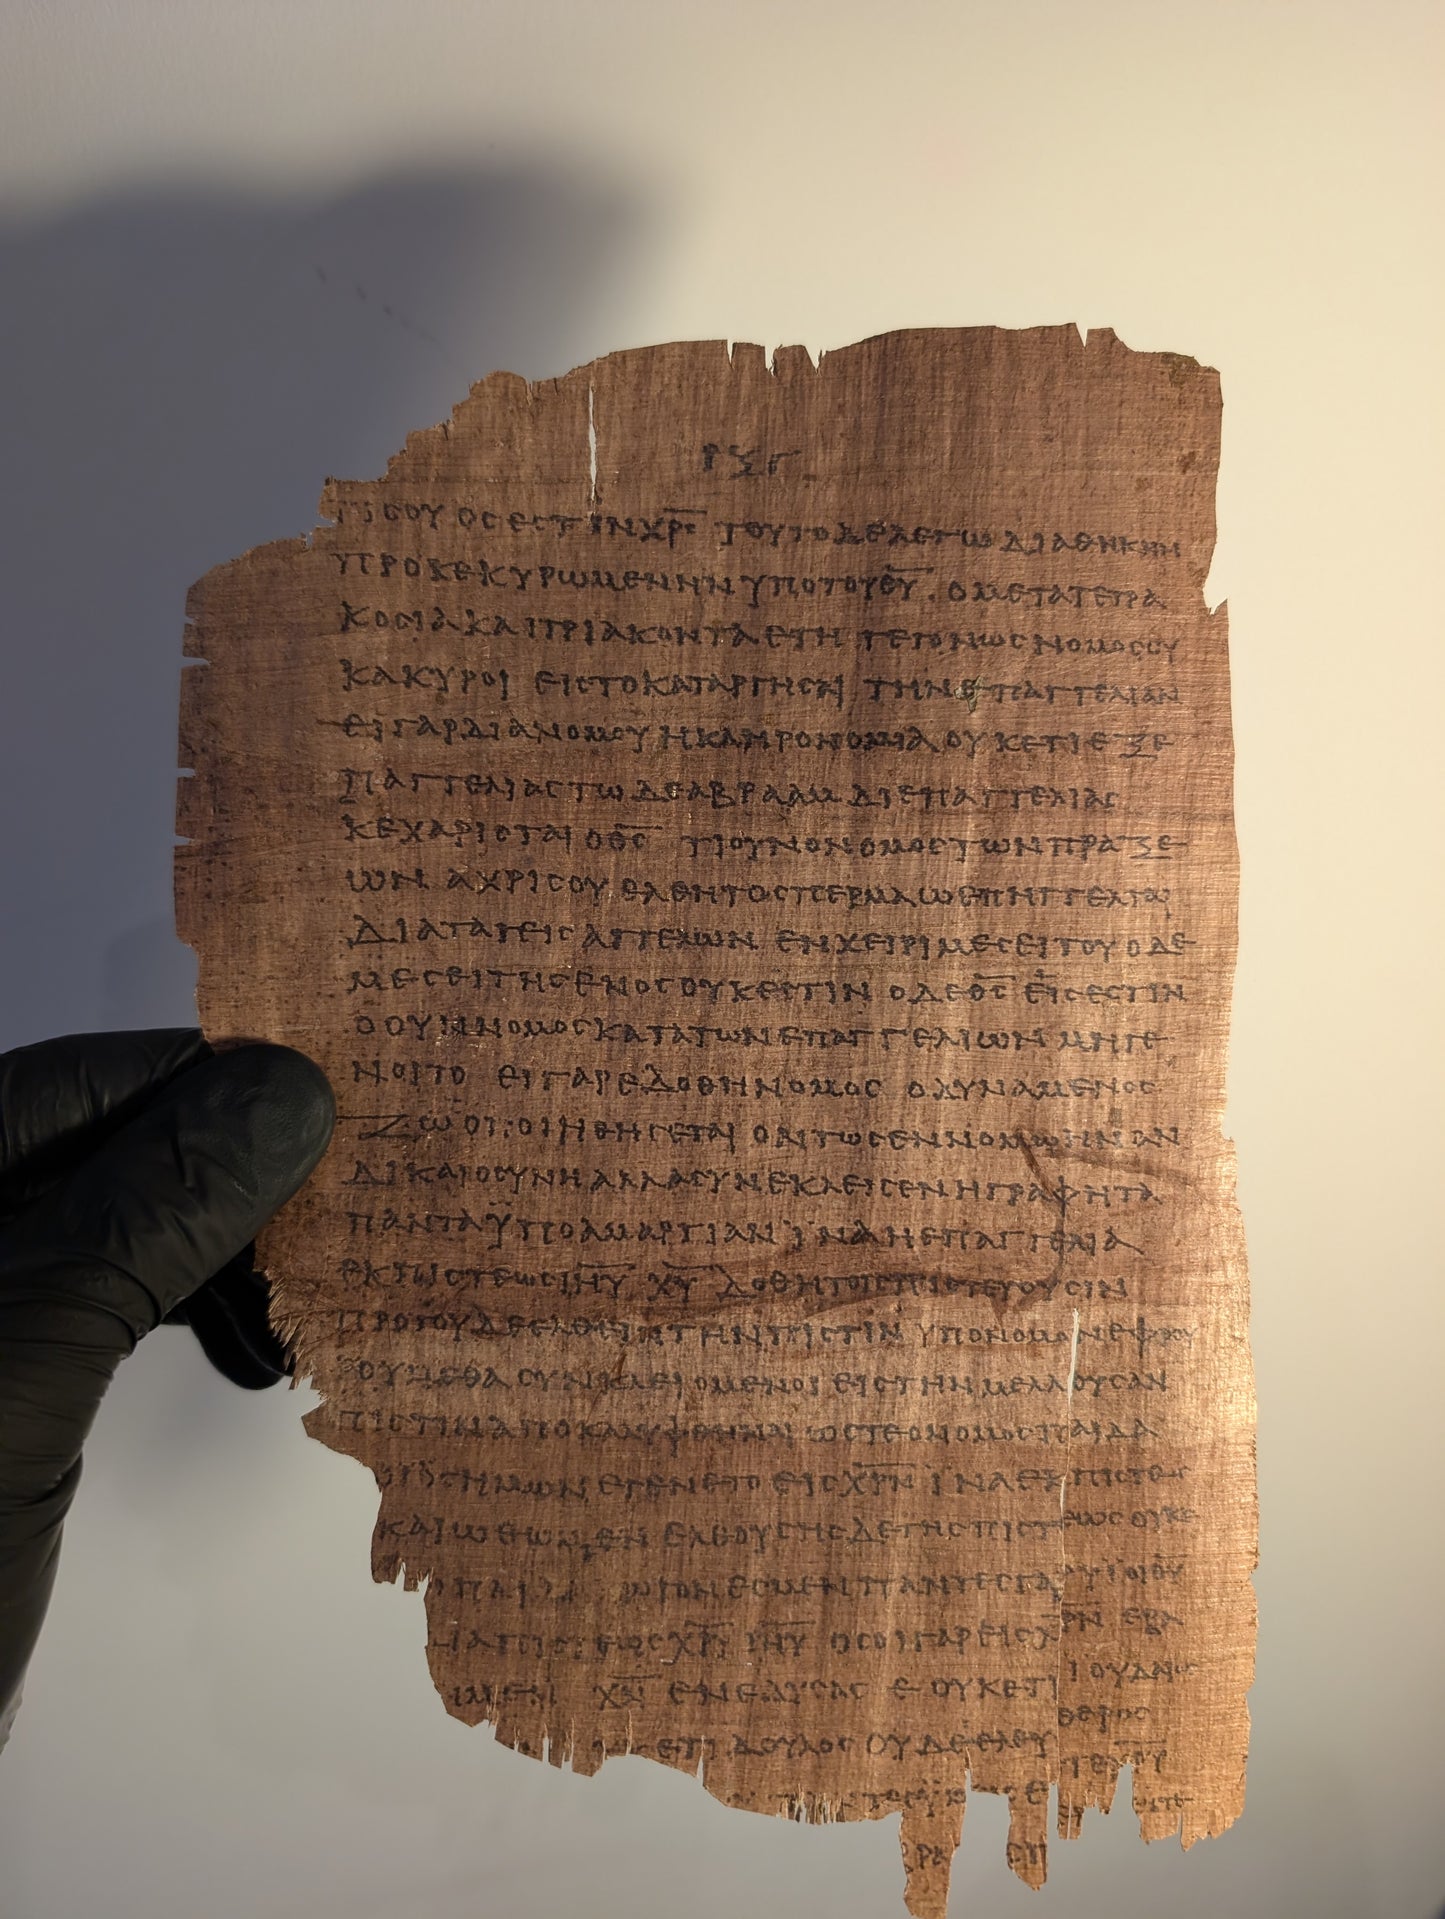 ΡΞΓ
ΣΟΥ ΟϹ ΕϹΤΙΝ ΧΡϹ ΤΟΥΤΟ ΔΕ ΛΕΓΩ ΔΙΑΘΗΚΗΝ
ΠΡΟΚΕΚΥΡΩΜΕΝΗΝ ΥΠΟ ΤΟΥ ΘΥ · Ο ΜΕΤΑ ΤΕΤΡΑ
ΚΟϹΙΑ ΚΑΙ ΤΡΙΑΚΟΝΤΑ ΕΤΗ ΓΕΓΟΝΩϹ ΝΟΜΟϹ ΟΥ
Κ ΑΚΥΡΟΙ ΕΙϹ ΤΟ ΚΑΤΑΡΓΗϹΑΙ ΤΗΝ ΕΠΑΓΓΕΛΙΑΝ
ΕΙ ΓΑΡ ΔΙΑ ΝΟΜΟΥ Η ΚΛΗΡΟΝΟΜΙΑ ΟΥΚΕΤΙ ΕΞ Ε
ΠΑΓΓΕΛΙΑϹ ΤΩ ΔΕ ΑΒΡΑΑΜ ΔΙ ΕΠΑΓΓΕΛΙΑϹ
ΚΕΧΑΡΙϹΤΑΙ Ο ΘϹ ΤΙ ΟΥΝ Ο ΝΟΜΟϹ ΤΩΝ ΠΡΑΞΕ
ΩΝ ΑΧΡΙϹ ΟΥ ΕΛΘΗ ΤΟ ϹΠΕΡΜΑ Ω ΕΠΗΓΓΕΛΤΑΙ
ΔΙΑΤΑΓΕΙϹ ΑΓΓΕΛΩΝ ΕΝ ΧΕΙΡΙ ΜΕϹΕΙΤΟΥ Ο ΔΕ
ΜΕϹΕΙΤΗϹ ΕΝΟϹ ΟΥΚ ΕϹΤΙΝ Ο ΔΕ ΘϹ ΕΙϹ ΕϹΤΙΝ
Ο ΟΥΝ ΝΟΜΟϹ ΚΑΤΑ ΤΩΝ ΕΠΑΓΓΕΛΙΩΝ ΜΗ ΓΕ
ΝΟΙΤΟ ΕΙ ΓΑΡ ΕΔΟΘΗ ΝΟΜΟϹ Ο ΔΥΝΑΜΕΝΟϹ
ΖΩΟΠΟΙΗΘΗϹΕΤΑΙ ΟΝΤΩϹ ΕΝ ΝΟΜΩ ΗΝ ΑΝ
ΔΙΚΑΙΟϹΥΝΗ ΑΛΛΑ ϹΥΝΕΚΛΕΙϹΕΝ Η ΓΡΑΦΗ ΤΑ
ΠΑΝΤΑ ΫΠΟ ΑΜΑΡΤΙΑΝ ΪΝΑ Η ΕΠΑΓΓΕΛΙΑ
ΕΚ ΠΙϹΤΕΩϹ ΙΗΥ ΧΥ ΔΟΘΗ ΤΟΙϹ ΠΙϹΤΕΥΟΥϹΙΝ
ΠΡΟ ΤΟΥ ΔΕ ΕΛΘΕΙΝ ΤΗΝ ΠΙϹΤΙΝ ΥΠΟ ΝΟΜΟΝ ΕΦΡΟΥ
ΟΥΜΕΘΑ ϹΥΝΚΛΕΙΟΜΕΝΟΙ ΕΙϹ ΤΗΝ ΜΕΛΛΟΥϹΑΝ
ΠΙϹΤΙΝ ΑΠΟΚΑΛΥΦΘΗΝΑΙ ΩϹΤΕ Ο ΝΟΜΟϹ ΠΑΙΔΑ
ΓΩΓΟϹ ΗΜΩΝ ΕΓΕΝΕΤΟ ΕΙϹ ΧΡΝ ΪΝΑ ΕΚ ΠΙϹΤΕΩϹ
ΚΑΙΩΘΩΜΕΝ ΕΛΘΟΥϹΗϹ ΔΕ ΤΗϹ ΠΙϹΤΕΩϹ ΟΥΚΕ
ΠΑΙΔΑ ΕϹΜΕΝ ΠΑΝΤΕϹ ΓΑΡ ΥΙΟΙ ΘΥ
ΔΙΑ ΠΙϹΤΕΩϹ ΧΡΥ ΙΗΥ ΟϹΟΙ ΓΑΡ ΕΙϹ ΧΡΝ ΕΒΑ
ΧΡΝ ΕΝΕΔΥϹΑϹΘΕ ΟΥΚΕΤΙ ΙΟΥΔΑΙΟϹ
ΚΕΤΙ ΔΟΥΛΟϹ ΟΥΔΕ ΕΛΕΥΘΕΡΟϹ